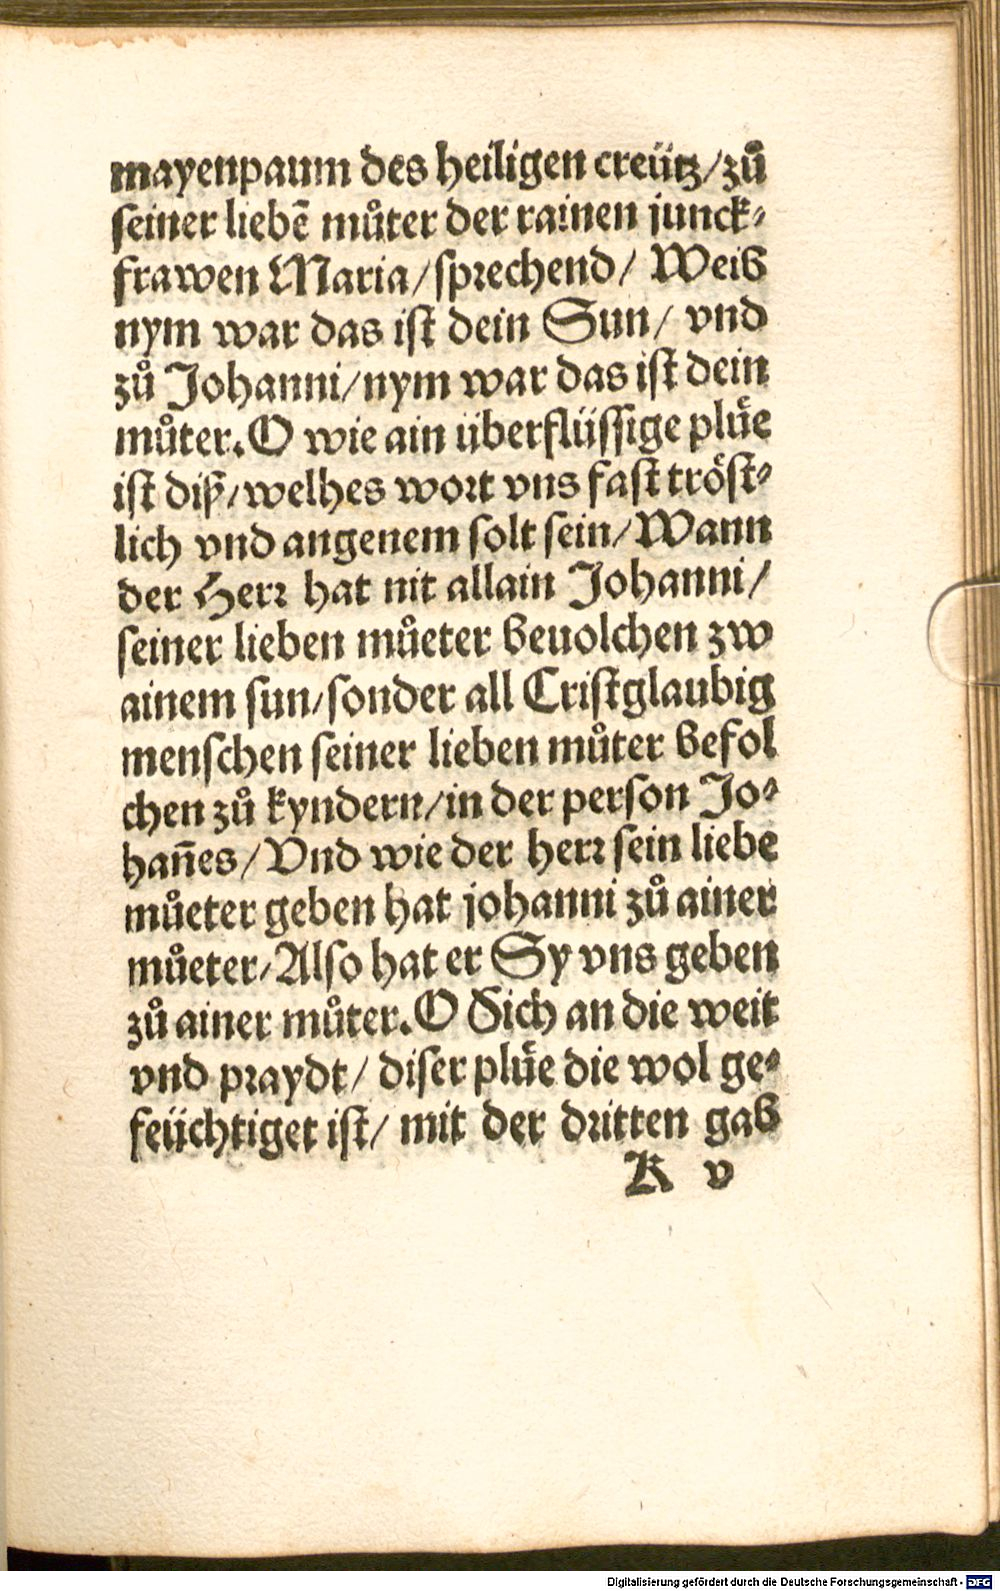 mayenpaum des heiligen creütz/zů
seiner liebē můter der rainen junck⸗
frawen Maria/sprechend/ Weib
nym war das ist dein Sun/ vnd
zů Johanni/nym war das ist dein
můter.O wie ain überflüssige plüe
ist diß/welhes wort vns fast tröst⸗
lich vnd angenem solt sein/Wann
der Herr hat nit allain Johanni/
seiner lieben můeter beuolchen zw
ainem sun/sonder all Cristglaubig
menschen seiner lieben můter befol
chen zů kyndern/in der person Jo⸗
han̄es/Vnd wie der herr sein liebe
můeter geben hat johanni zů ainer
můeter/Also hat er Sy vns geben
zů ainer můter.O Sich an die weit
vnd praydt/ diser plüe die wol ge⸗
feüchtiget ist/ mit der dritten gab
K v
Digitalisierung gefördert durch die Deutsche Forschungsgemeinschaft - DFG